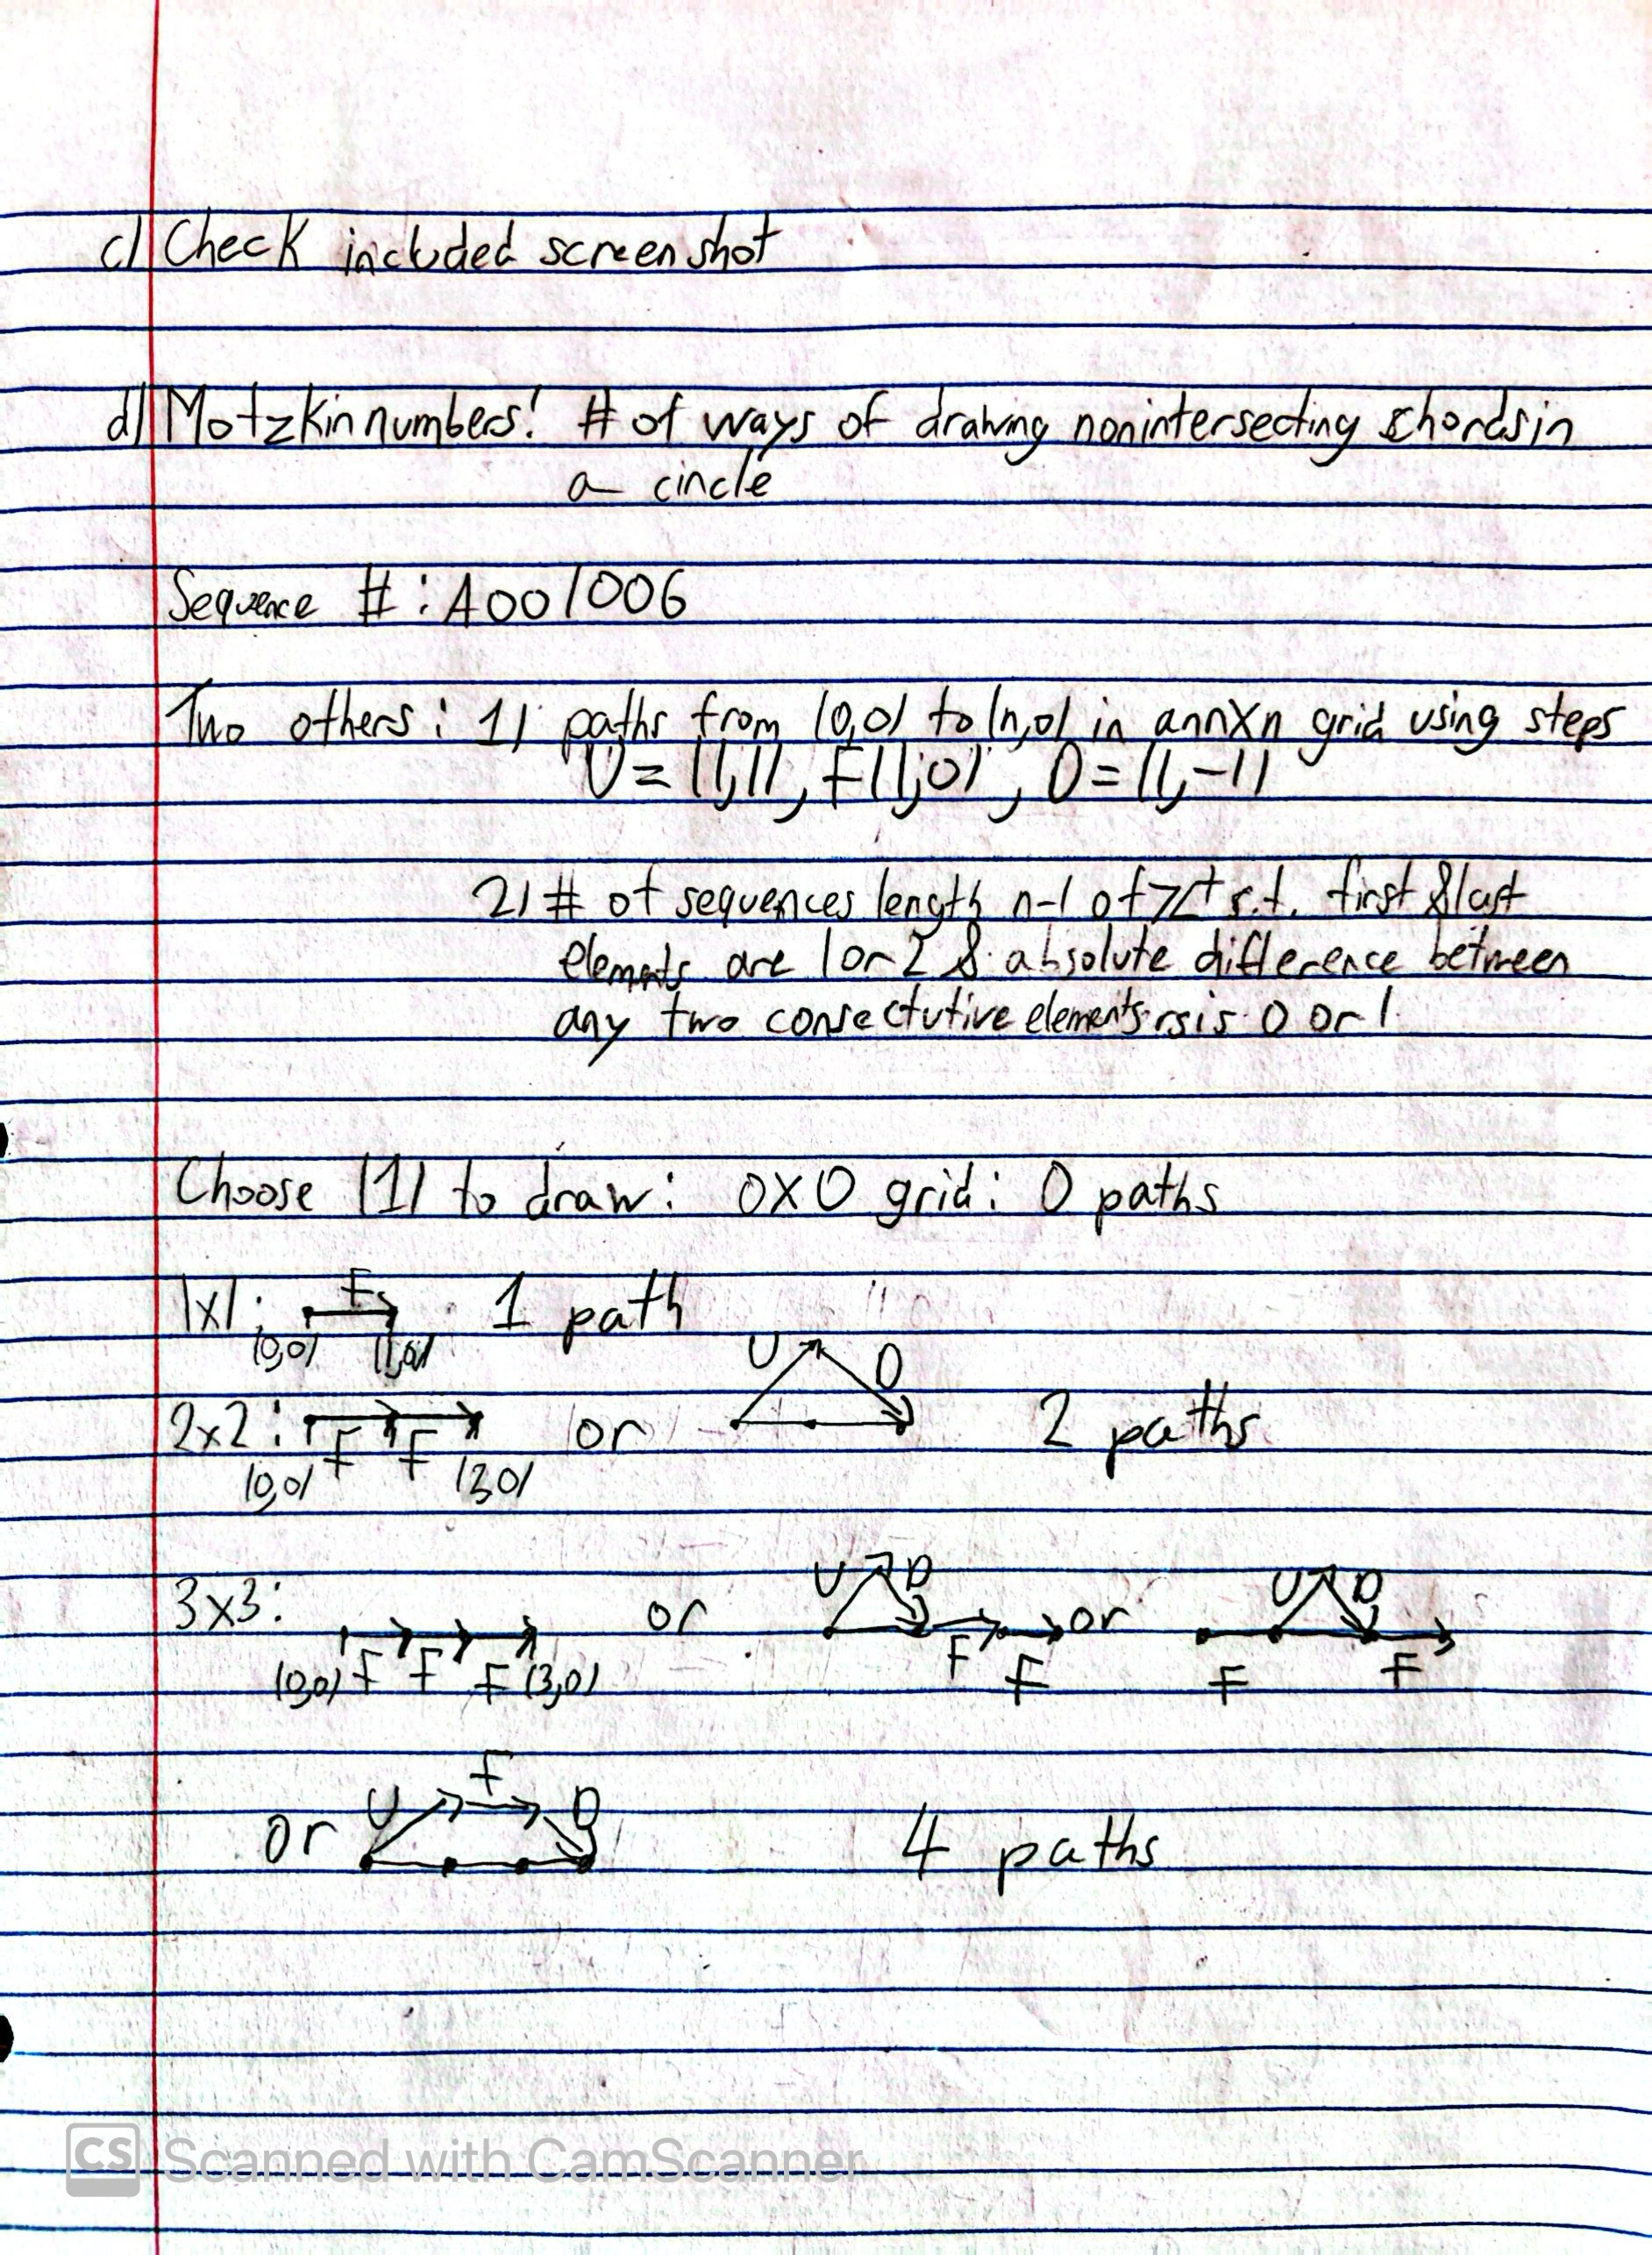 c) Check included screenshot
d) Motzkin numbers! # of ways of drawing nonintersecting chords in
a circle
Sequence #: A001006
Two others: 1) paths from (0,0) to (n,0) in an nxn grid using steps
U = (1,1), F(1,0), D = (1,-1)
2) # of sequences length n-1 of Z+ s.t. first & last
elements are 1 or 2 & absolute difference between
any two consectutive elements is 0 or 1.
Choose (1) to draw: 0x0 grid: 0 paths
1x1: F 1 path
(0,0) (1,0)
U D
2x2: F F or 2 paths
(0,0) (3,0)
U D U D
3x3: or or
(0,0) F F F (3,0) F F F F
F
U D
or 4 paths
CS Scanned with CamScanner